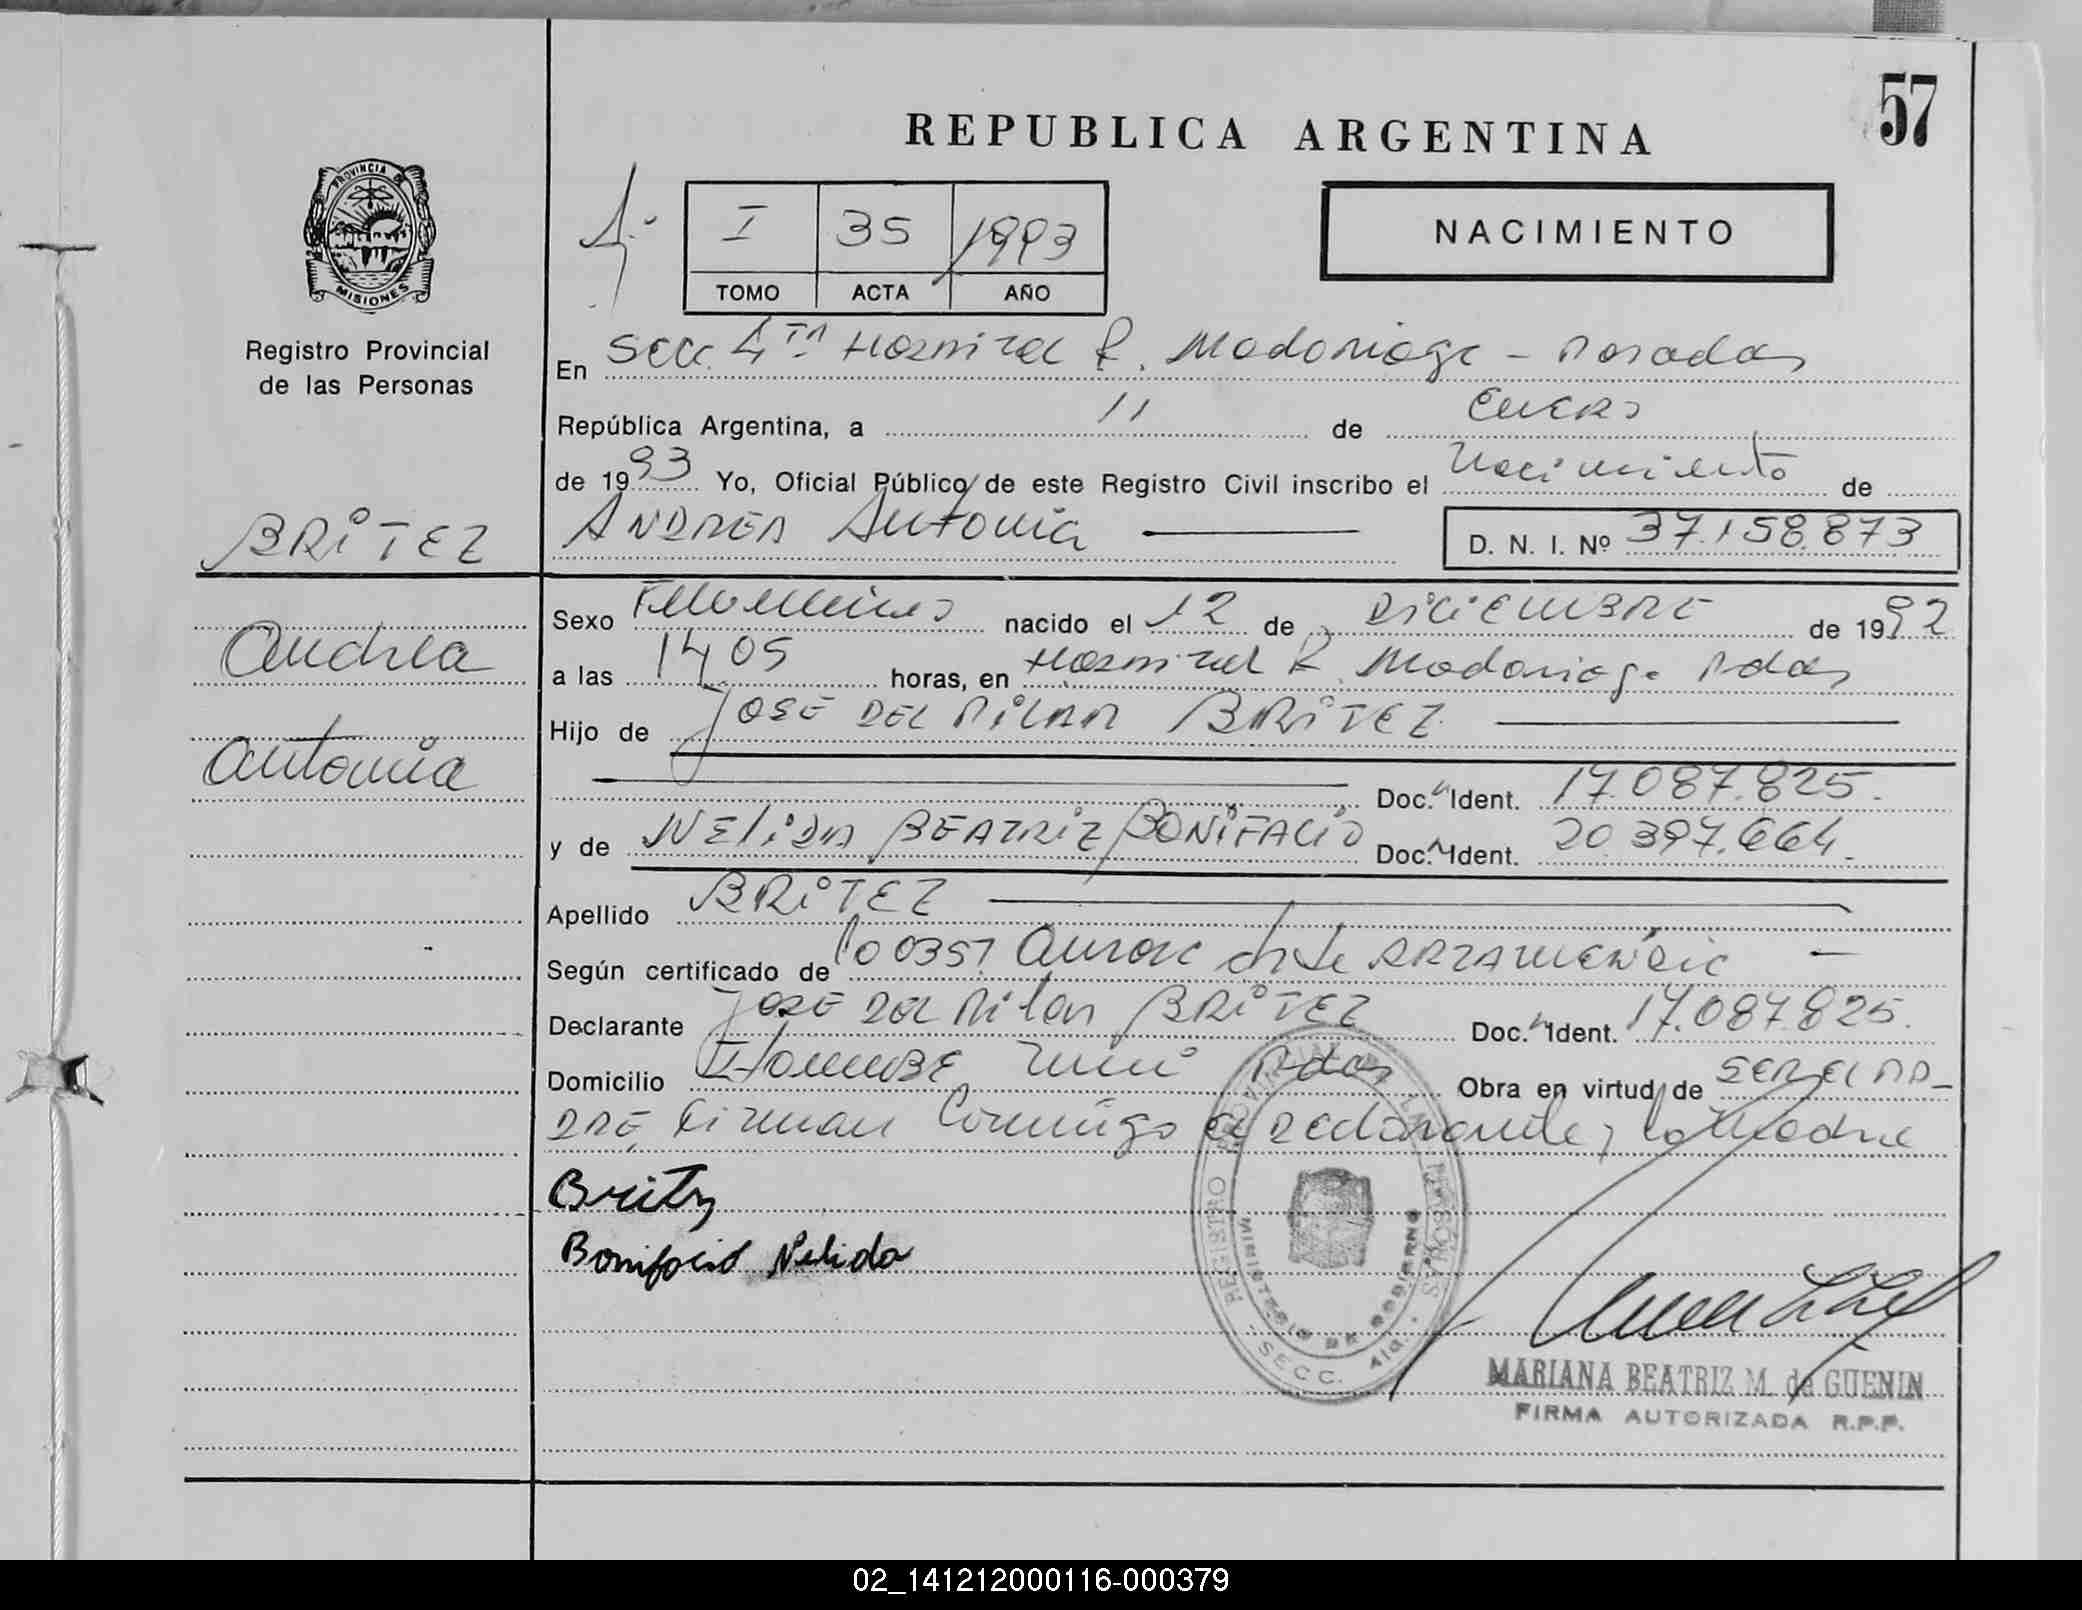 57
REPUBLICA ARGENTINA
PROVINCIA DE
MISIONES
Registro Provincial
de las Personas
I 35 1993
TOMO ACTA AÑO
NACIMIENTO
En Secc. 4ta Hospital R. Madariaga - Posadas
República Argentina, a 11 de Enero
de 1993 Yo, Oficial Público de este Registro Civil inscribo el Nacimiento de
BRiTEZ
ANDREA Antonia
D. N. I. Nº 37.158.873
Andrea
Antonia
Sexo Femenino nacido el 12 de DiCiEMBRE de 1992
a las 14,05 horas, en Hospital R. Madariaga Pdas
Hijo de JOSE DEL PiLAR BRiTEZ
Doc. Ident. 17.087.825.
y de NELiDA BEATRiZ BONiFACiO Doc. Ident. 20.397.664.
Apellido BRiTEZ
Según certificado de 100357
Declarante JOSE DEL PiLAR BRiTEZ Doc. Ident. 17.087.825.
Domicilio Pdas Obra en virtud de SER EL PA-
DRE, Firman Conmigo el Declarante y la Madre
Britez
Bonifacio Nelida
REGISTRO PROVINCIAL DE LAS PERSONAS
MINISTERIO DE GOBIERNO
SECC. 4ta.
MARIANA BEATRIZ M. de GUENIN
FIRMA AUTORIZADA R.P.P.
02_141212000116-000379